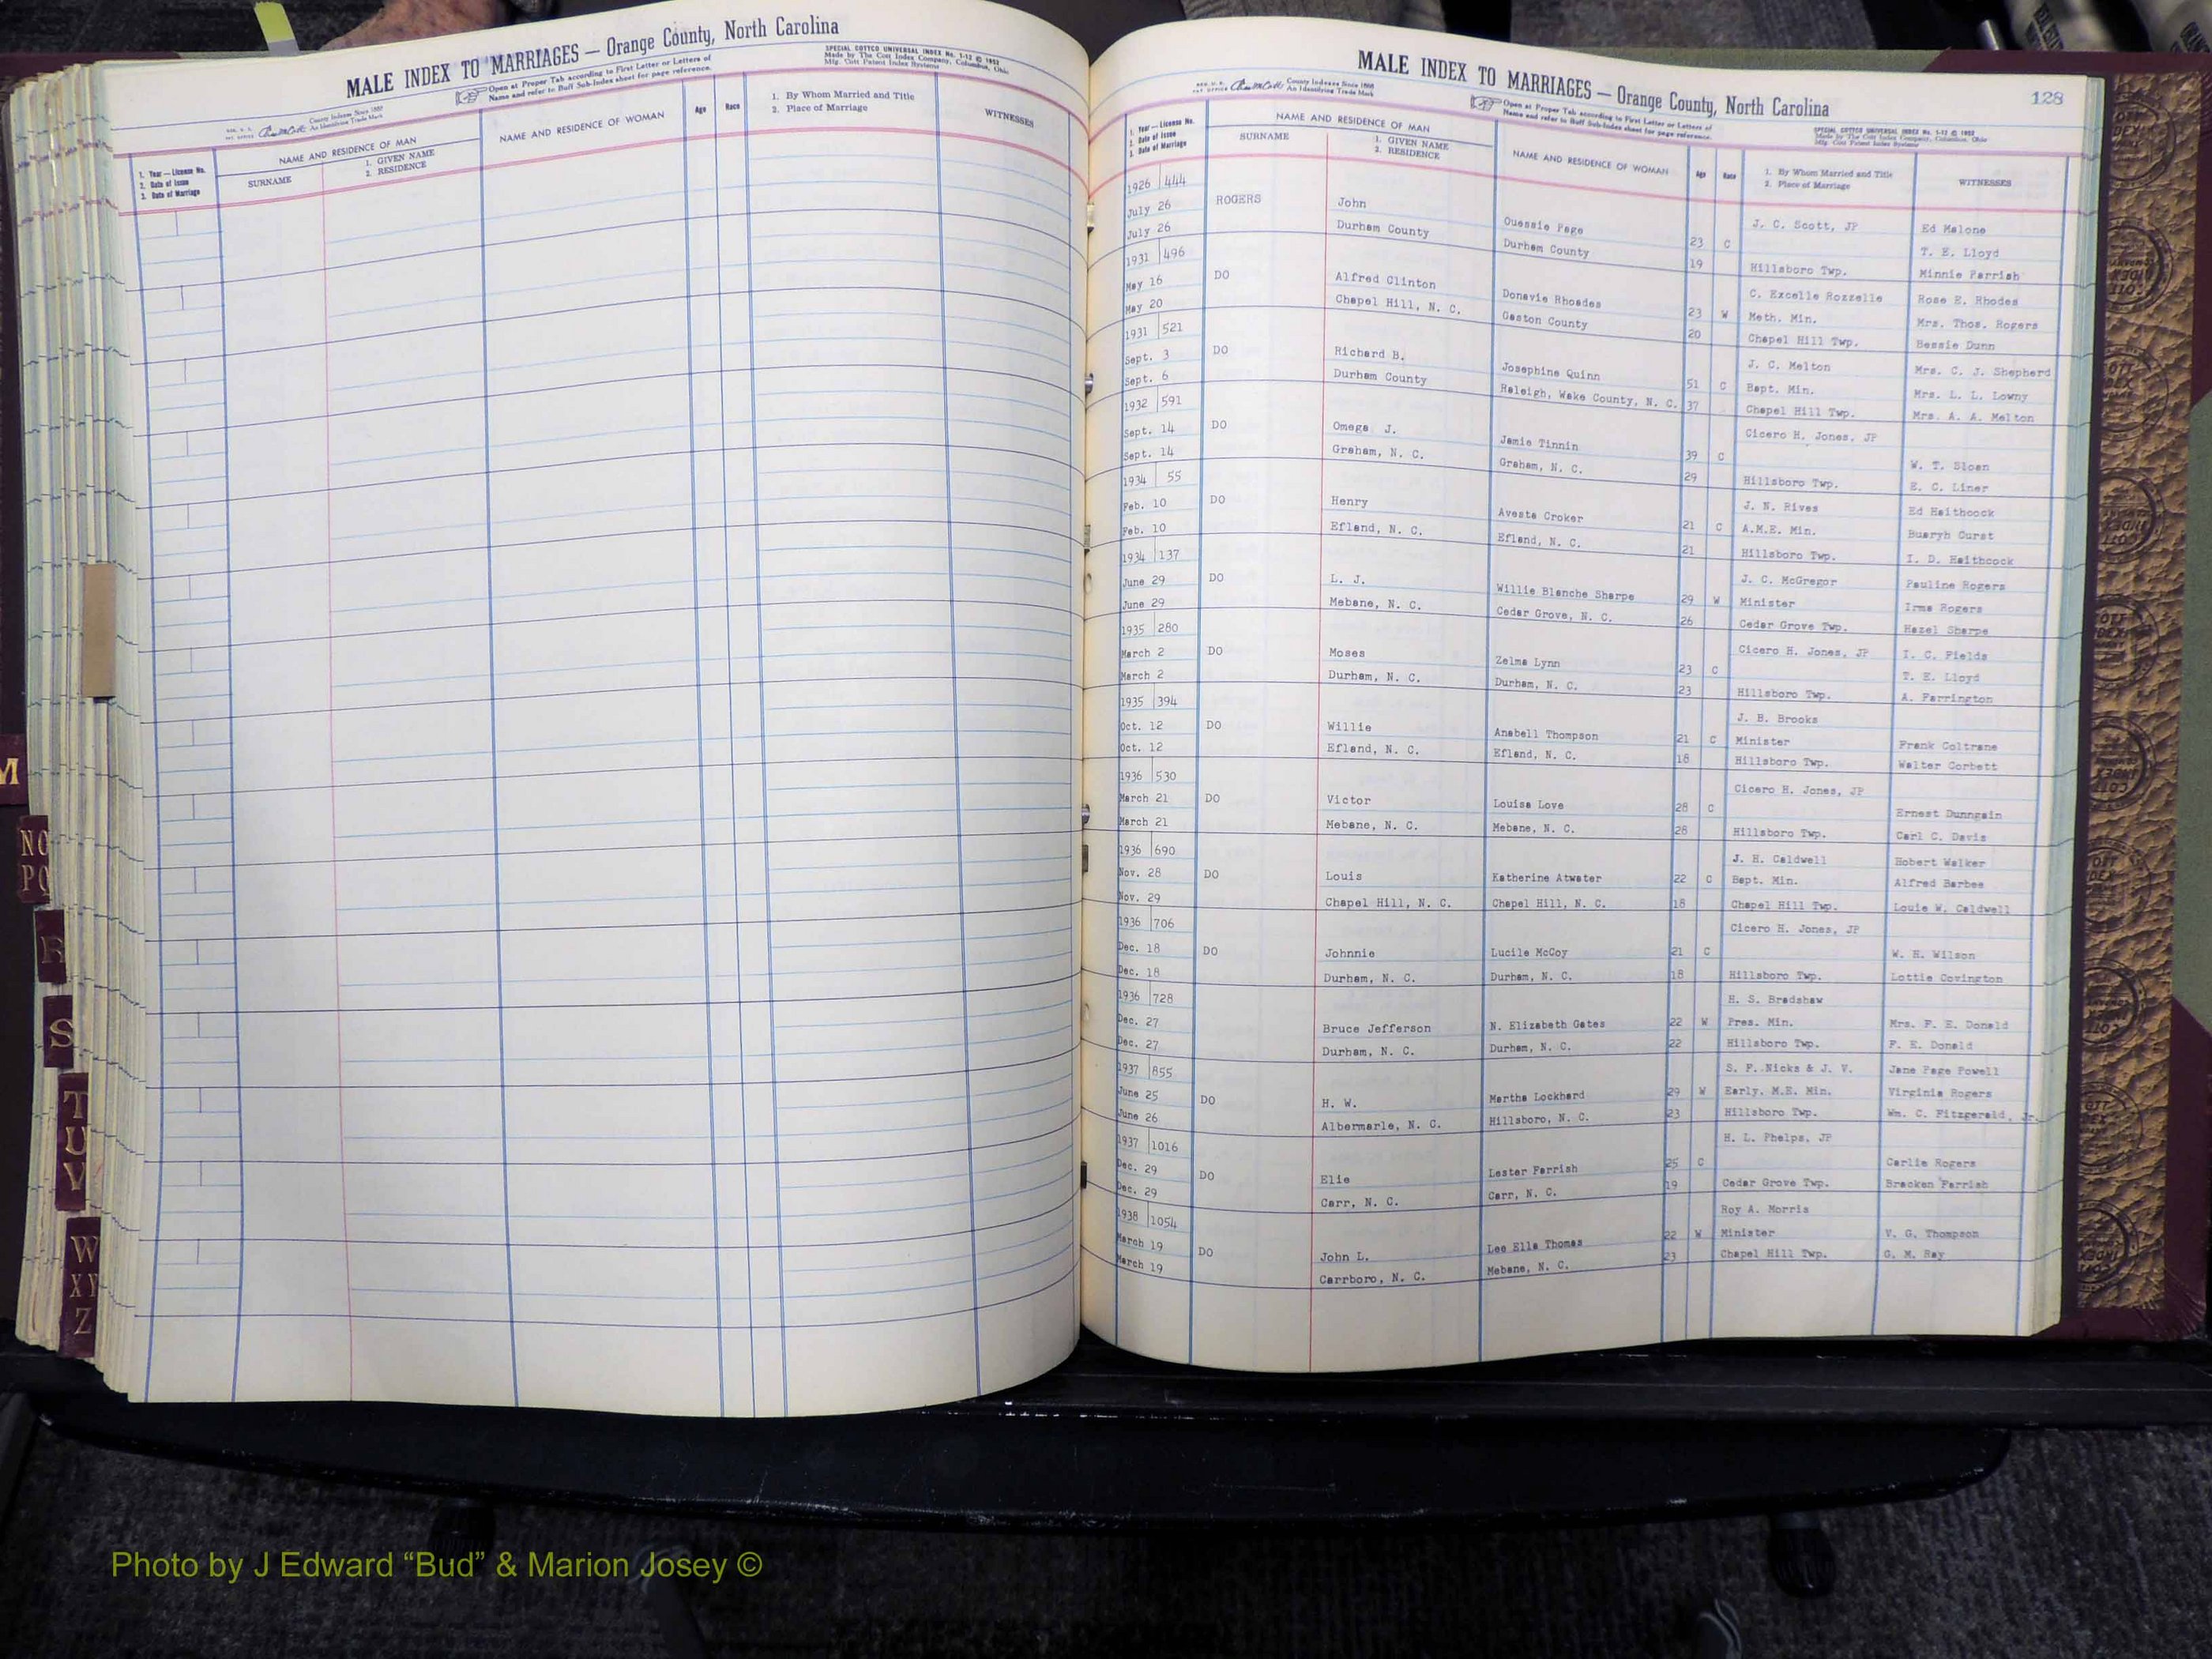 MALE INDEX TO MARRIAGES — Orange County, North Carolina
Open at Proper Tab according to First Letter or Letters of
Name and refer to Buff Sub-Index sheet for page reference.
SPECIAL COTTCO UNIVERSAL INDEX No. 1-12 © 1952
Made by The Cott Index Company, Columbus, Ohio
Mfg. Cott Patent Index Systems
County Indexes Since 1888
An Identifying Trade Mark
1. Year — License No.
2. Date of Issue
3. Date of Marriage
NAME AND RESIDENCE OF MAN
SURNAME
1. GIVEN NAME
2. RESIDENCE
NAME AND RESIDENCE OF WOMAN
Age
Race
1. By Whom Married and Title
2. Place of Marriage
WITNESSES
MALE INDEX TO MARRIAGES — Orange County, North Carolina
128
County Indexes Since 1888
An Identifying Trade Mark
Open at Proper Tab according to First Letter or Letters of
Name and refer to Buff Sub-Index sheet for page reference.
SPECIAL COTTCO UNIVERSAL INDEX No. 1-12 © 1952
Made by The Cott Index Company, Columbus, Ohio
Mfg. Cott Patent Index Systems
1. Year — License No.
2. Date of Issue
3. Date of Marriage
NAME AND RESIDENCE OF MAN
SURNAME
1. GIVEN NAME
2. RESIDENCE
NAME AND RESIDENCE OF WOMAN
Age
Race
1. By Whom Married and Title
2. Place of Marriage
WITNESSES
1926 444 J. C. Scott, JP Ed Malone
July 26 ROGERS John Ouessie Page 23 C T. E. Lloyd
July 26 Durham County Durham County 19 Hillsboro Twp. Minnie Parrish
1931 496 C. Excelle Rozzelle Rose E. Rhodes
May 16 DO Alfred Clinton Donavie Rhoades 23 W Meth. Min. Mrs. Thos. Rogers
May 20 Chapel Hill, N. C. Gaston County 20 Chapel Hill Twp. Bessie Dunn
1931 521 J. C. Melton Mrs. C. J. Shepherd
Sept. 3 DO Richard B. Josephine Quinn 51 C Bapt. Min. Mrs. L. L. Lowny
Sept. 6 Durham County Raleigh, Wake County, N. C. 37 Chapel Hill Twp. Mrs. A. A. Melton
1932 591 Cicero H. Jones, JP
Sept. 14 DO Omega J. Jamie Tinnin 39 C W. T. Sloan
Sept. 14 Graham, N. C. Graham, N. C. 29 Hillsboro Twp. E. C. Liner
1934 55 J. N. Rives Ed Haithcock
Feb. 10 DO Henry Avesta Croker 21 C A.M.E. Min. Buaryh Curst
Feb. 10 Efland, N. C. Efland, N. C. 21 Hillsboro Twp. I. D. Haithcock
1934 137 J. C. McGregor Pauline Rogers
June 29 DO L. J. Willie Blanche Sharpe 29 W Minister Irma Rogers
June 29 Mebane, N. C. Cedar Grove, N. C. 26 Cedar Grove Twp. Hazel Sharpe
1935 280 Cicero H. Jones, JP I. C. Fields
March 2 DO Moses Zelma Lynn 23 C T. E. Lloyd
March 2 Durham, N. C. Durham, N. C. 23 Hillsboro Twp. A. Farrington
1935 394 J. B. Brooks
Oct. 12 DO Willie Anabell Thompson 21 C Minister Frank Coltrane
Oct. 12 Efland, N. C. Efland, N. C. 18 Hillsboro Twp. Walter Corbett
1936 530 Cicero H. Jones, JP
March 21 DO Victor Louise Love 28 C Ernest Dunngain
March 21 Mebane, N. C. Mebane, N. C. 28 Hillsboro Twp. Carl C. Davis
1936 690 J. H. Caldwell Hobert Walker
Nov. 28 DO Louis Katherine Atwater 22 C Bapt. Min. Alfred Barbee
Nov. 29 Chapel Hill, N. C. Chapel Hill, N. C. 18 Chapel Hill Twp. Louie W. Caldwell
1936 706 Cicero H. Jones, JP
Dec. 18 DO Johnnie Lucile McCoy 21 C W. H. Wilson
Dec. 18 Durham, N. C. Durham, N. C. 18 Hillsboro Twp. Lottie Covington
1936 728 H. S. Bradshaw
Dec. 27 Bruce Jefferson N. Elizabeth Gates 22 W Pres. Min. Mrs. F. E. Donald
Dec. 27 Durham, N. C. Durham, N. C. 22 Hillsboro Twp. F. E. Donald
1937 855 S. F. Nicks & J. V. Jane Page Powell
June 25 DO H. W. Martha Lockhard 29 W Early, M.E. Min. Virginia Rogers
June 26 Albermarle, N. C. Hillsboro, N. C. 23 Hillsboro Twp. Wm. C. Fitzgerald, Jr.
1937 1016 H. L. Phelps, JP
Dec. 29 DO Elie Lester Farrish 25 C Carlie Rogers
Dec. 29 Carr, N. C. Carr, N. C. 19 Cedar Grove Twp. Bracken Farrish
1938 1054 Roy A. Morris
March 19 DO John L. Lee Ella Thomas 22 W Minister V. G. Thompson
March 19 Carrboro, N. C. Mebane, N. C. 23 Chapel Hill Twp. G. M. Ray
M
NO
PQ
R
S
T
U
V
W
XY
Z
Photo by J Edward “Bud” & Marion Josey ©